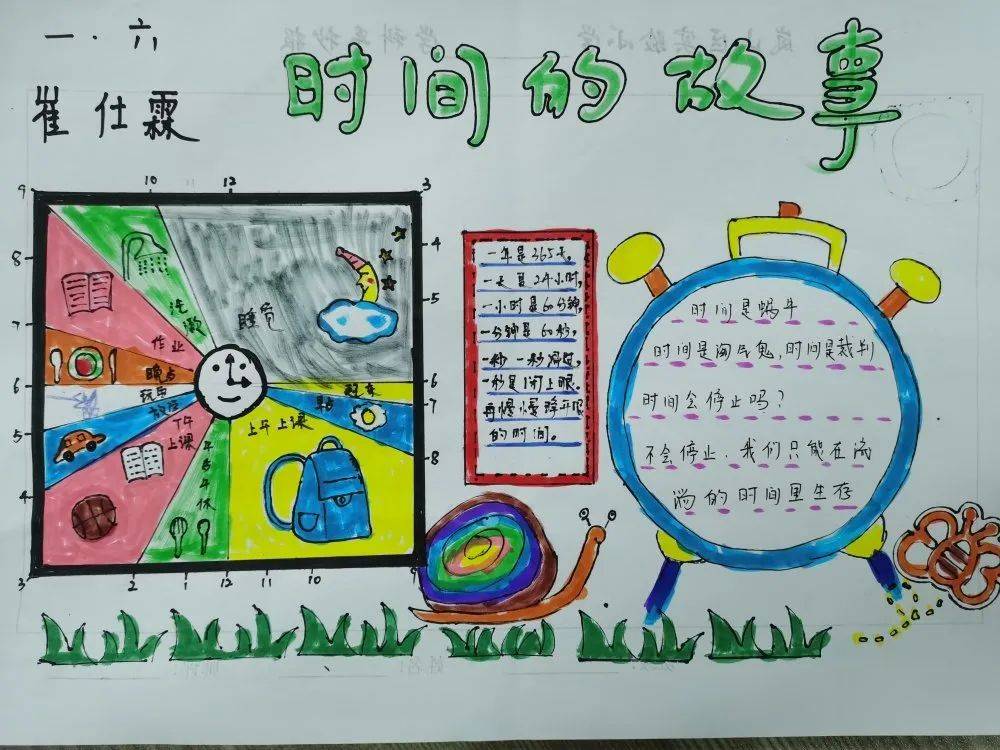 一.六
崔仕霖
时间的故事
9 10 12 3
8
7
6
5
4
3 2 1 12 11 10
4
5
6
7
8
洗漱
睡觉
作业
晚点
玩耍
放学
下午
上课
午餐午休
上午上课
早
起床
一年是365天。
一天是24小时,
一小时是60分钟,
一分钟是60秒,
一秒一秒溜过,
一秒是1闭上眼。
再慢慢睁开眼
的时间。
时间是蜗牛
时间是淘气鬼,时间是裁判
时间会停止吗?
不会停止.我们只能在流
淌的时间里生存